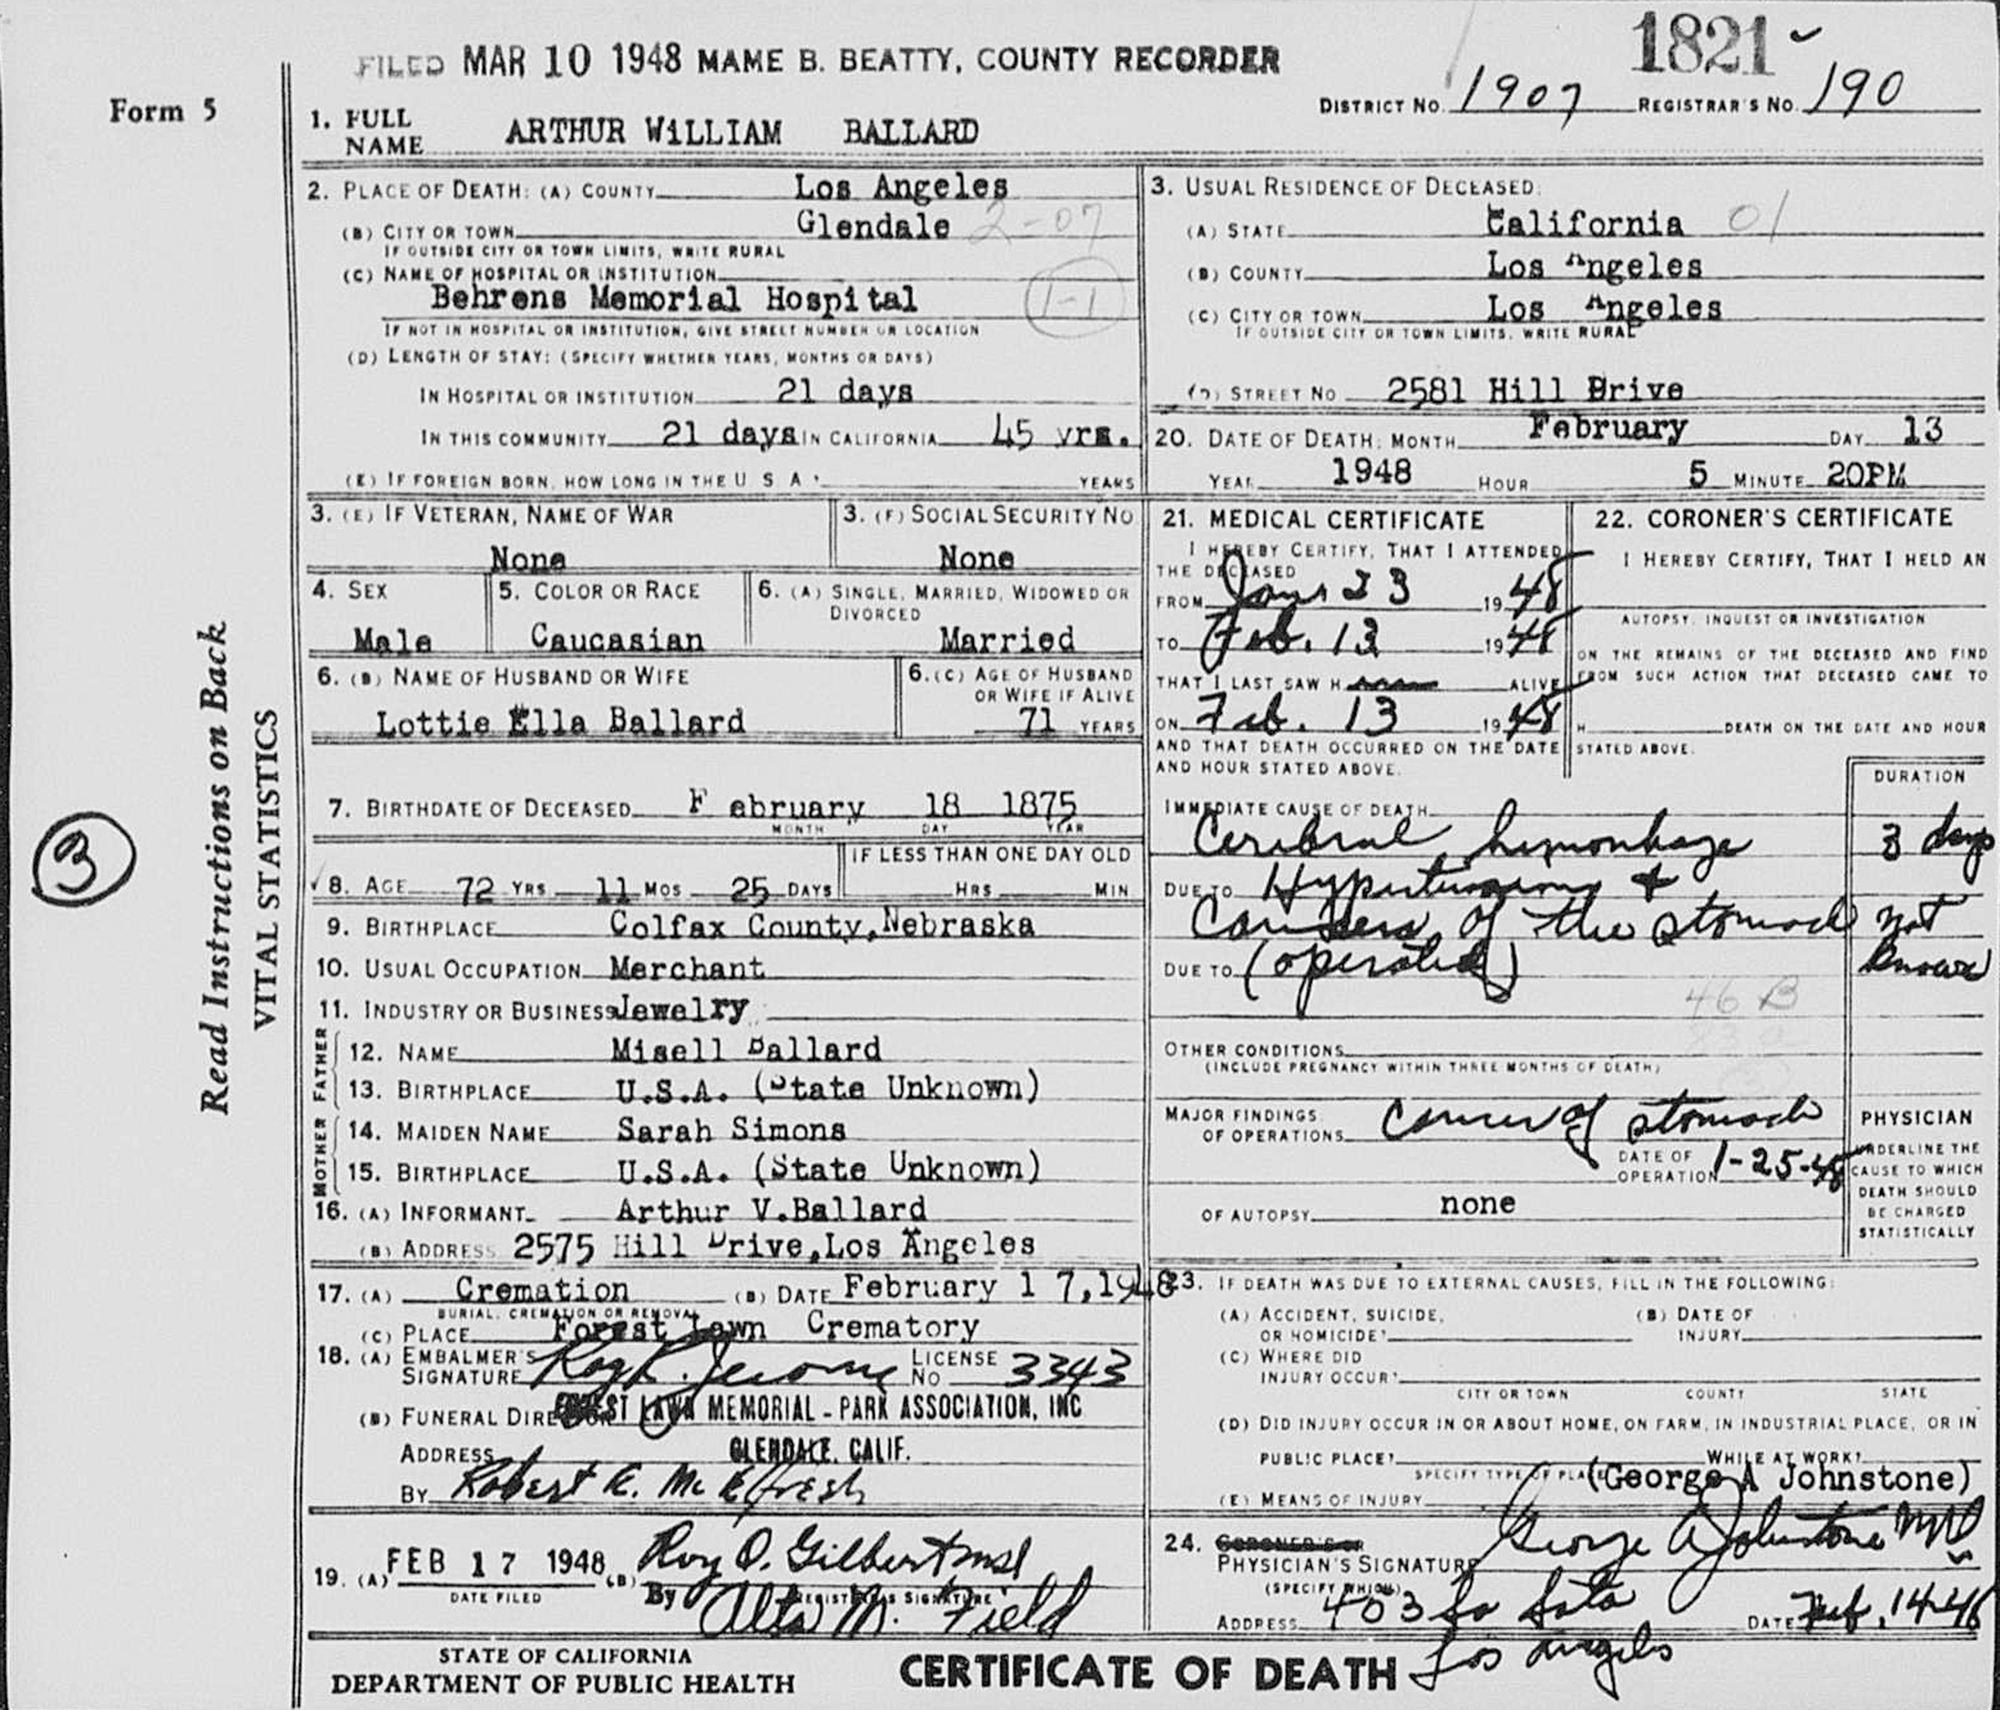 FILED MAR 10 1948 MAME B. BEATTY, COUNTY RECORDER
1821
Form 5
DISTRICT NO. 1907 REGISTRAR'S NO. 190
1. FULL NAME ARTHUR WiLLIAM BALLARD
2. PLACE OF DEATH: (A) COUNTY Los Angeles
(B) CITY OR TOWN Glendale 2-07
IF OUTSIDE CITY OR TOWN LIMITS, WRITE RURAL
(C) NAME OF HOSPITAL OR INSTITUTION
Behrens Memorial Hospital 1-1
IF NOT IN HOSPITAL OR INSTITUTION, GIVE STREET NUMBER OR LOCATION
(D) LENGTH OF STAY: (SPECIFY WHETHER YEARS, MONTHS OR DAYS)
IN HOSPITAL OR INSTITUTION 21 days
IN THIS COMMUNITY 21 days IN CALIFORNIA 45 yrs.
(E) IF FOREIGN BORN, HOW LONG IN THE U S A? YEARS
3. USUAL RESIDENCE OF DECEASED:
(A) STATE California 01
(B) COUNTY Los Angeles
(C) CITY OR TOWN Los Angeles
IF OUTSIDE CITY OR TOWN LIMITS, WRITE RURAL
(D) STREET NO 2581 Hill Drive
20. DATE OF DEATH: MONTH February DAY 13
YEAR 1948 HOUR 5 MINUTE 20PM
3. (E) IF VETERAN, NAME OF WAR
None
3. (F) SOCIAL SECURITY NO
None
4. SEX
Male
5. COLOR OR RACE
Caucasian
6. (A) SINGLE, MARRIED, WIDOWED OR DIVORCED
Married
6. (B) NAME OF HUSBAND OR WIFE
Lottie Ella Ballard
6. (C) AGE OF HUSBAND OR WIFE IF ALIVE
71 YEARS
7. BIRTHDATE OF DECEASED February 18 1875
MONTH DAY YEAR
8. AGE 72 YRS 11 MOS 25 DAYS
IF LESS THAN ONE DAY OLD
HRS MIN
9. BIRTHPLACE Colfax County, Nebraska
10. USUAL OCCUPATION Merchant
11. INDUSTRY OR BUSINESS Jewelry
FATHER
12. NAME Misell Ballard
13. BIRTHPLACE U.S.A. (State Unknown)
MOTHER
14. MAIDEN NAME Sarah Simons
15. BIRTHPLACE U.S.A. (State Unknown)
16. (A) INFORMANT Arthur V.Ballard
(B) ADDRESS 2575 Hill Drive, Los Angeles
17. (A) Cremation (B) DATE February 1 7, 1948
BURIAL, CREMATION OR REMOVAL
(C) PLACE Forest Lawn Crematory
18. (A) EMBALMER'S SIGNATURE Roy R. Jerome LICENSE NO 3343
(B) FUNERAL DIRECTOR FOREST LAWN MEMORIAL-PARK ASSOCIATION, INC
ADDRESS GLENDALE, CALIF.
BY Robert E. McElfresh
19. (A) FEB 17 1948 (B) Roy O. Gilbert MD
DATE FILED REGISTRAR'S SIGNATURE
By Alta M. Field
21. MEDICAL CERTIFICATE
I HEREBY CERTIFY, THAT I ATTENDED
THE DECEASED
FROM Jan 23 1948
TO Feb. 13 1948
THAT I LAST SAW H ALIVE
ON Feb. 13 1948
AND THAT DEATH OCCURRED ON THE DATE
AND HOUR STATED ABOVE.
22. CORONER'S CERTIFICATE
I HEREBY CERTIFY, THAT I HELD AN
AUTOPSY, INQUEST OR INVESTIGATION
ON THE REMAINS OF THE DECEASED AND FIND
FROM SUCH ACTION THAT DECEASED CAME TO
H DEATH ON THE DATE AND HOUR
STATED ABOVE.
DURATION
IMMEDIATE CAUSE OF DEATH
Cerebral hemorrhage 3 days
DUE TO Hypertension &
Cancer of the stomach not
DUE TO (operated) known
46 B
OTHER CONDITIONS
(INCLUDE PREGNANCY WITHIN THREE MONTHS OF DEATH)
MAJOR FINDINGS:
OF OPERATIONS Cancer of stomach
DATE OF OPERATION 1-25-48
OF AUTOPSY none
PHYSICIAN
UNDERLINE THE
CAUSE TO WHICH
DEATH SHOULD
BE CHARGED
STATISTICALLY
23. IF DEATH WAS DUE TO EXTERNAL CAUSES, FILL IN THE FOLLOWING:
(A) ACCIDENT, SUICIDE, OR HOMICIDE?
(B) DATE OF INJURY
(C) WHERE DID INJURY OCCUR?
CITY OR TOWN COUNTY STATE
(D) DID INJURY OCCUR IN OR ABOUT HOME, ON FARM, IN INDUSTRIAL PLACE, OR IN
PUBLIC PLACE? WHILE AT WORK?
SPECIFY TYPE OF PLACE
(George A Johnstone)
(E) MEANS OF INJURY
24. CORONER'S OR
PHYSICIAN'S SIGNATURE George A Johnstone MD
(SPECIFY WHICH)
ADDRESS 403 So DATE Feb. 14-48
Los Angeles
STATE OF CALIFORNIA
DEPARTMENT OF PUBLIC HEALTH
CERTIFICATE OF DEATH
Read Instructions on Back
VITAL STATISTICS
3